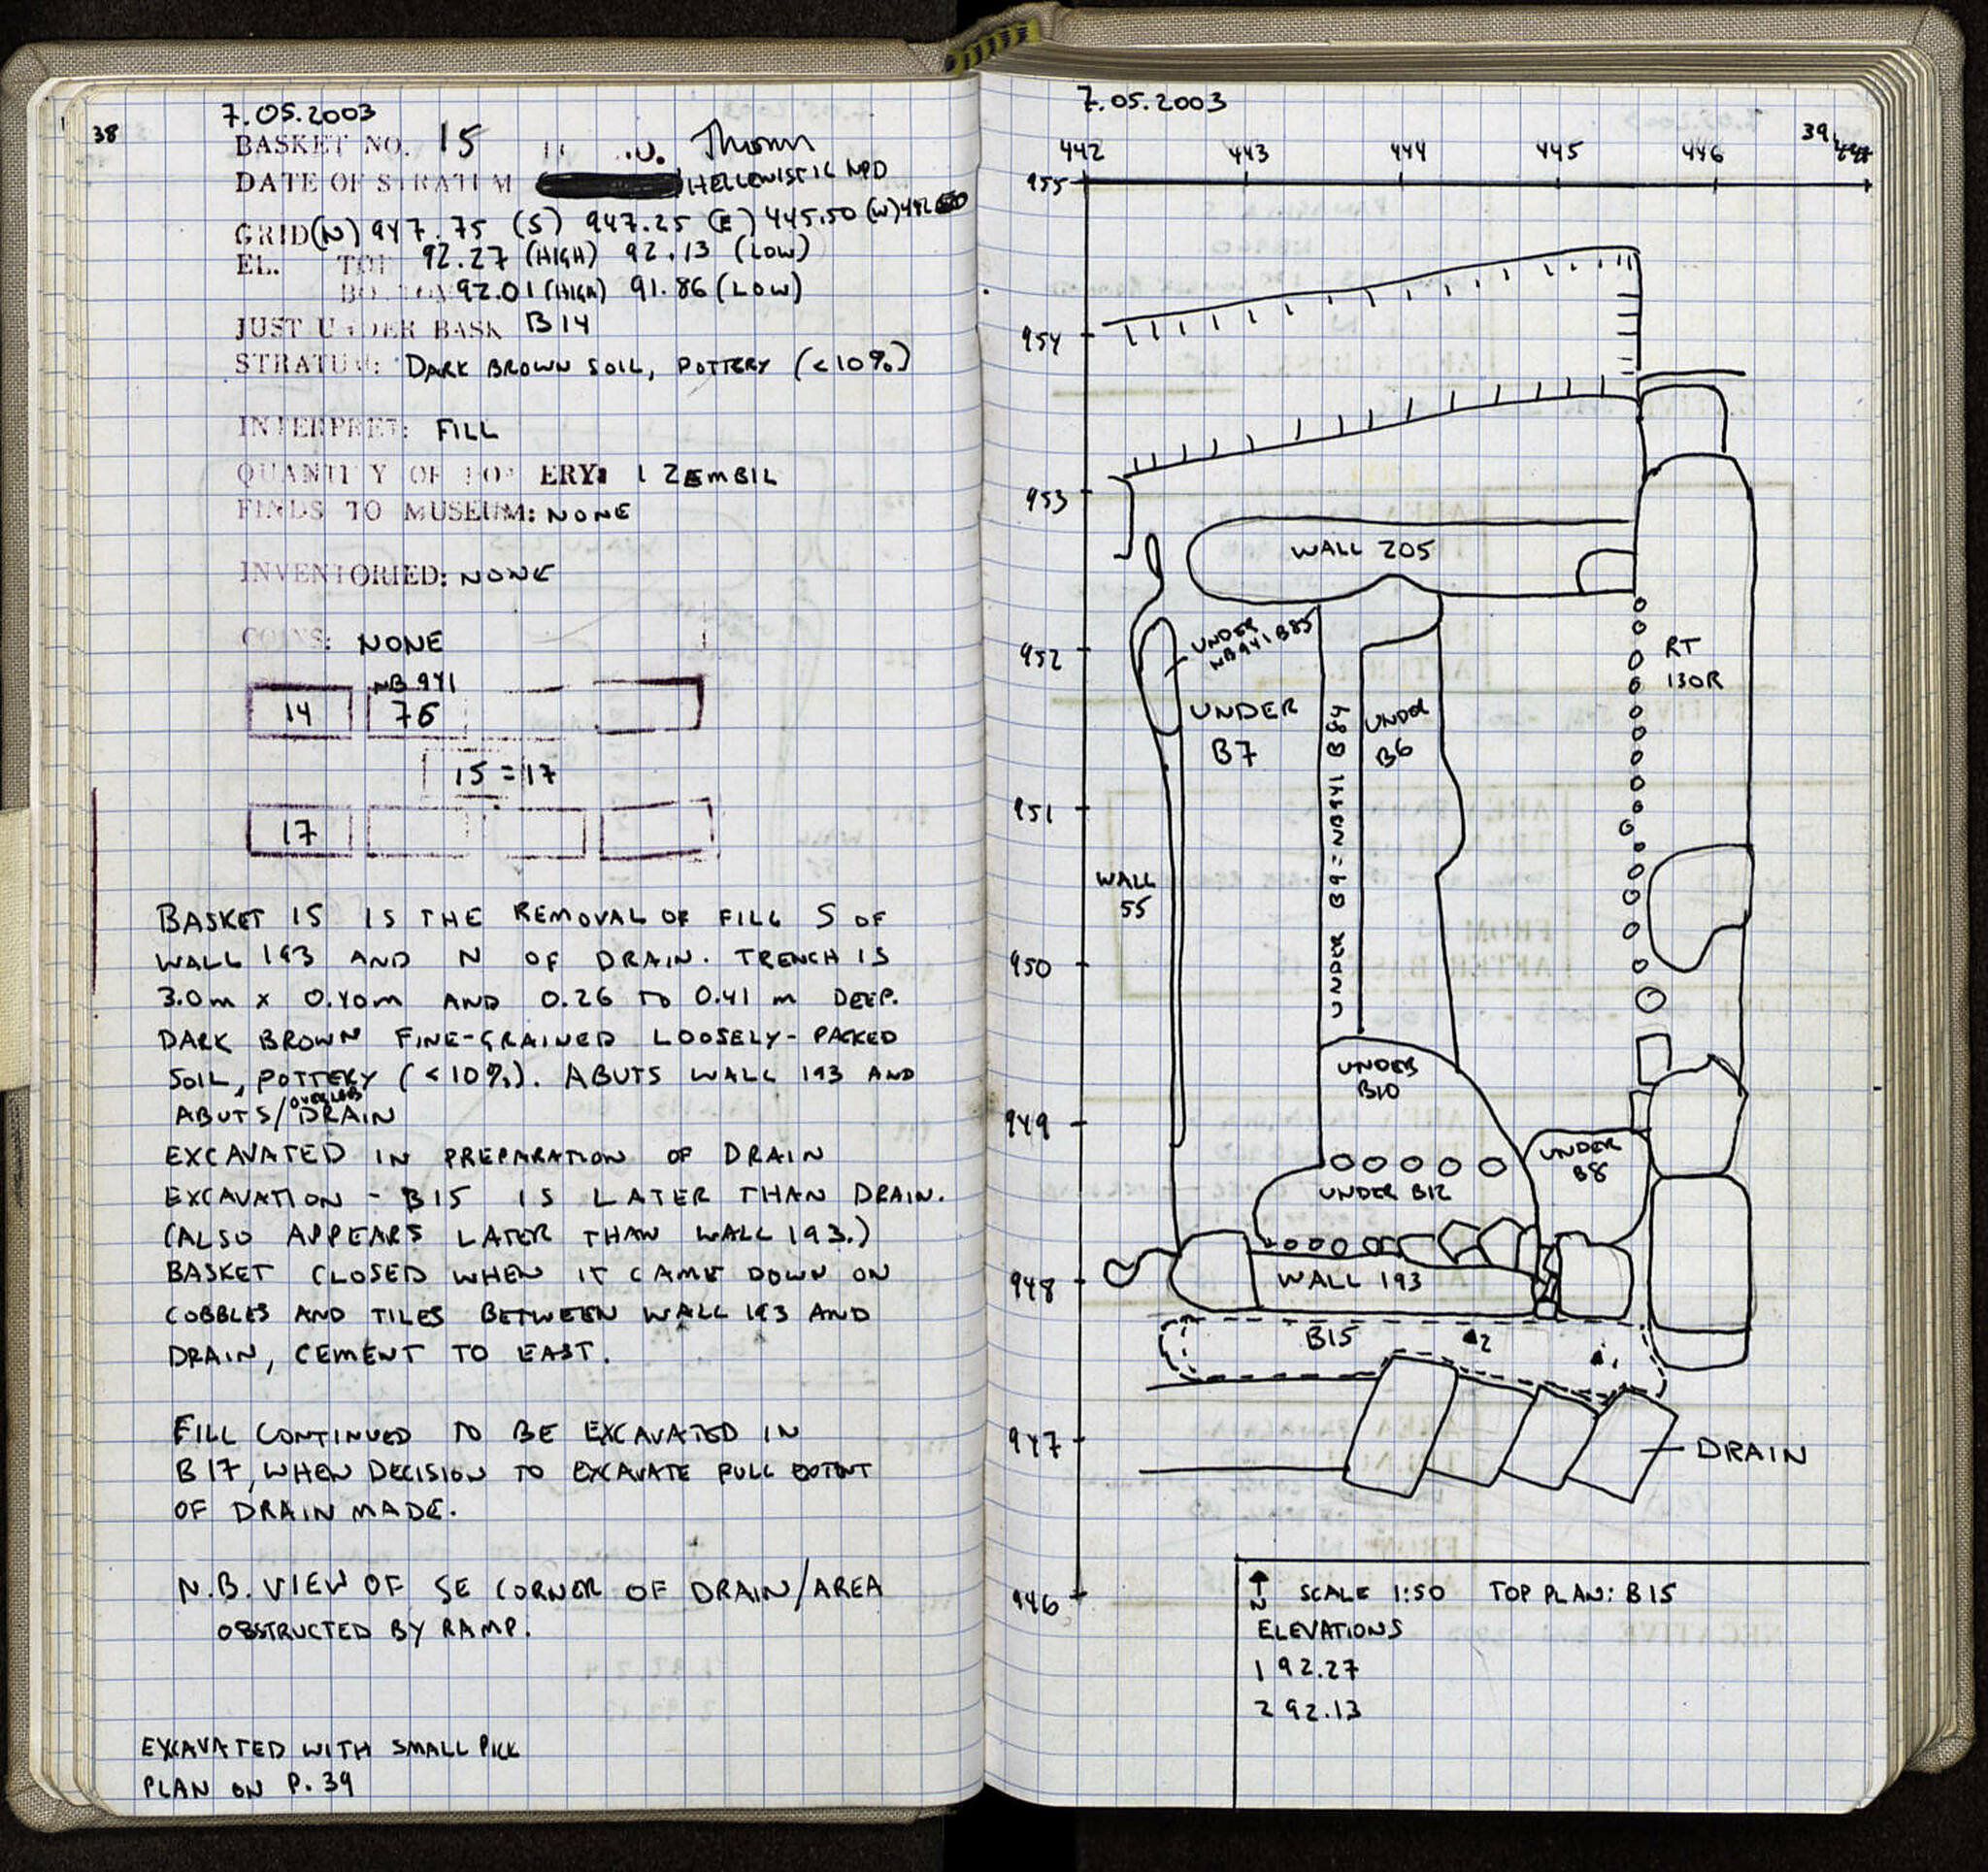 7.05.2003
38
BASKET NO. 15
DATE OF STRATUM HELLENISTIC NPD
GRID (N) 947.75 (S) 947.25 (E) 445.50 (W) 442
EL. TOP 92.27 (HIGH) 92.13 (LOW)
BOTTOM 92.01 (HIGH) 91.86 (LOW)
JUST UNDER BASK B14
STRATUM: DARK BROWN SOIL, POTTERY (<10%)
INTERPRET: FILL
QUANTITY OF POTTERY: 1 ZEMBIL
FINDS TO MUSEUM: NONE
INVENTORIED: NONE
COINS: NONE
NB 941
14 76
15 = 17
17
BASKET 15 IS THE REMOVAL OF FILL S OF
WALL 193 AND N OF DRAIN. TRENCH IS
3.0m x 0.40m AND 0.26 TO 0.41 m DEEP.
DARK BROWN FINE-GRAINED LOOSELY-PACKED
SOIL, POTTERY (<10%). ABUTS WALL 193 AND
ABUTS/OVERLAPS DRAIN
EXCAVATED IN PREPARATION OF DRAIN
EXCAVATION - B15 IS LATER THAN DRAIN.
(ALSO APPEARS LATER THAN WALL 193.)
BASKET CLOSED WHEN IT CAME DOWN ON
COBBLES AND TILES BETWEEN WALL 193 AND
DRAIN, CEMENT TO EAST.
FILL CONTINUED TO BE EXCAVATED IN
B17, WHEN DECISION TO EXCAVATE FULL EXTENT
OF DRAIN MADE.
N.B. VIEW OF SE CORNER OF DRAIN/AREA
OBSTRUCTED BY RAMP.
EXCAVATED WITH SMALL PICK
PLAN ON P. 39
7.05.2003
39
442 443 444 445 446
955
954
953
WALL 205
952
UNDER
NB941 B85
RT
130R
UNDER
B7
UNDER
B6
UNDER B9 = NB941 B84
951
WALL
55
950
UNDER
B10
949
UNDER
B8
UNDER B12
948
WALL 193
B15
2
1
947
DRAIN
946
N SCALE 1:50 TOP PLAN: B15
ELEVATIONS
1 92.27
2 92.13